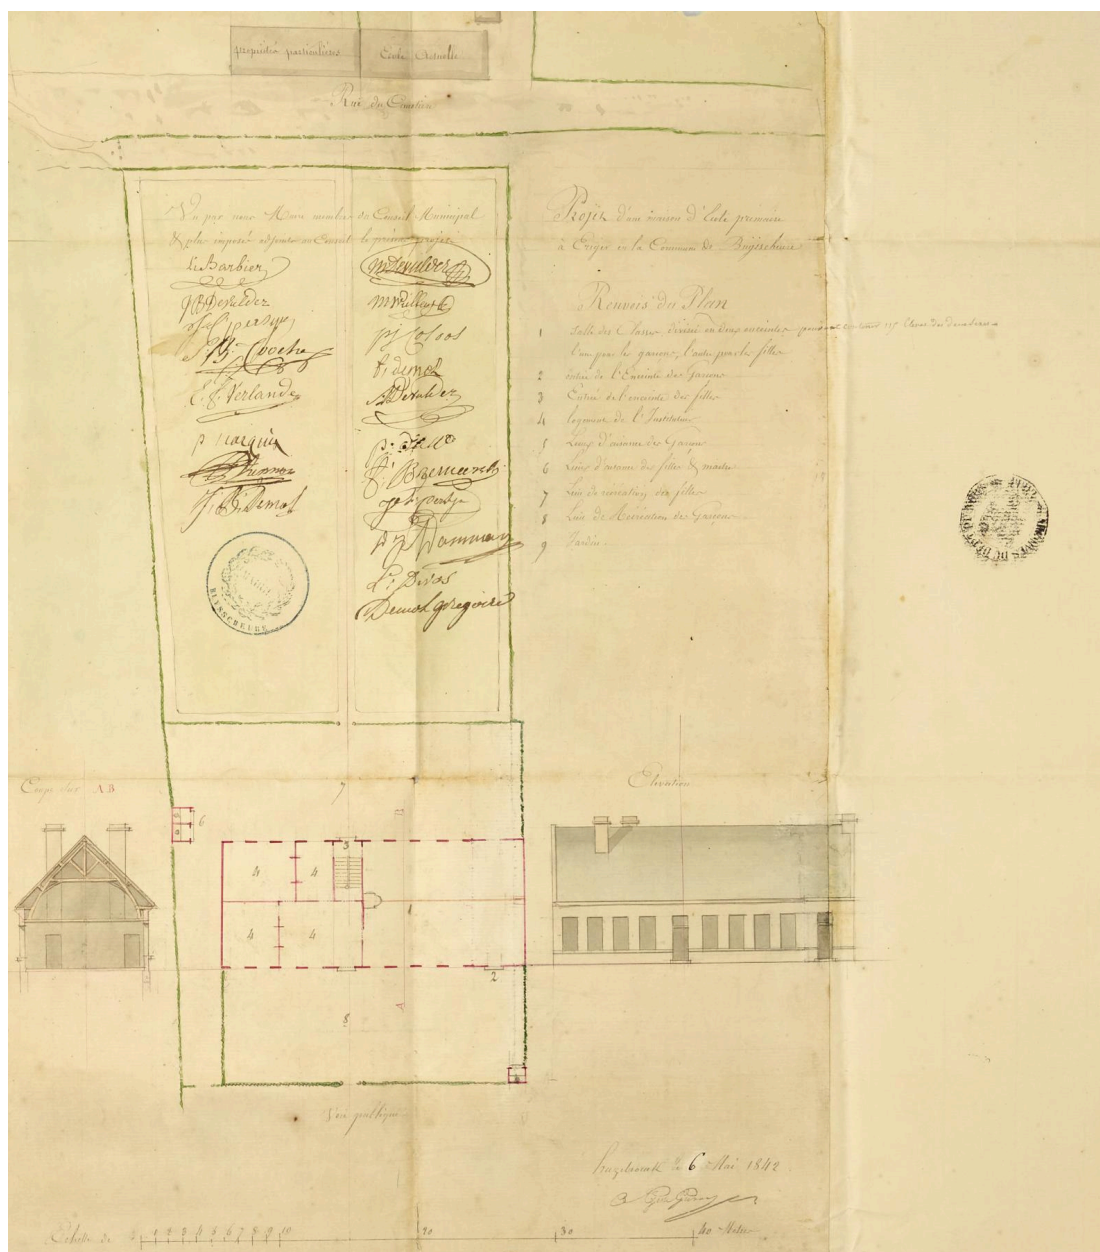 propriétés particulières
Ecole Actuelle
Rue du Cimetière
Vu par nous Maire membre du Conseil Municipal
& plus imposés adjoints au Conseil le présent projet
Barbier
JB Devulder
Croche
Verlande
Demol
MAIRIE
BUYSSCHEURE
m Devulder
pj Coloos
demol
Devulder
Dammam
Devos
Demol gregoire
Projet d'une maison d'Ecole primaire
à Eriger en la Commune de Buysscheure
Renvois du Plan
1 Salle des Classes divisé en deux enceintes
l'une pour les garçons, l'autre pour les filles
2 entrée de l'Enceinte des Garçons
3 Entrée de l'enceinte des filles
4 logement de l'Instituteur
5 Lieux d'aisance des Garçons
6 Lieux d'aisance des filles &
7 Lieu de récréation des filles
8 Lieu de Récréation des Garçons
9 Jardin
Coupe sur AB
Elévation
7
6
B
3
4
4
1
4
4
2
A
8
Voie publique
hazebrouck le 6 Mai 1842
Echelle de 1 2 3 4 5 6 7 8 9 10 20 30 40 Mètres